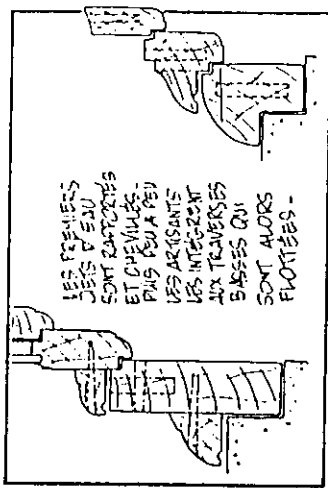 LES PREMIERS
JETS D'EAU
SONT RAPPORTÉS
ET CHEVILLÉS-
PUIS PEU A PEU
LES ARTISANTS
LES INTÈGRENT
AUX TRAVERSES
BASSES QUI
SONT ALORS
FLOTTÉES-